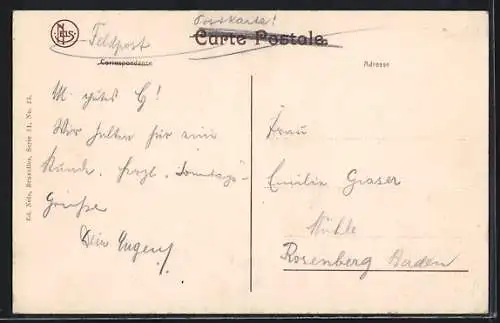 NELS
Feldpost
Postkarte!
Carte Postale
Correspondance
Adresse
Ed. Nels, Bruxelles, Serie 11, No. 21.
M. gutes E!
Wir halten für eine
Stunde. Herzl. Sonntags-
Grüße
Dein Eugen!
Frau
Emilie Graser
Mühle
Rosenberg Baden